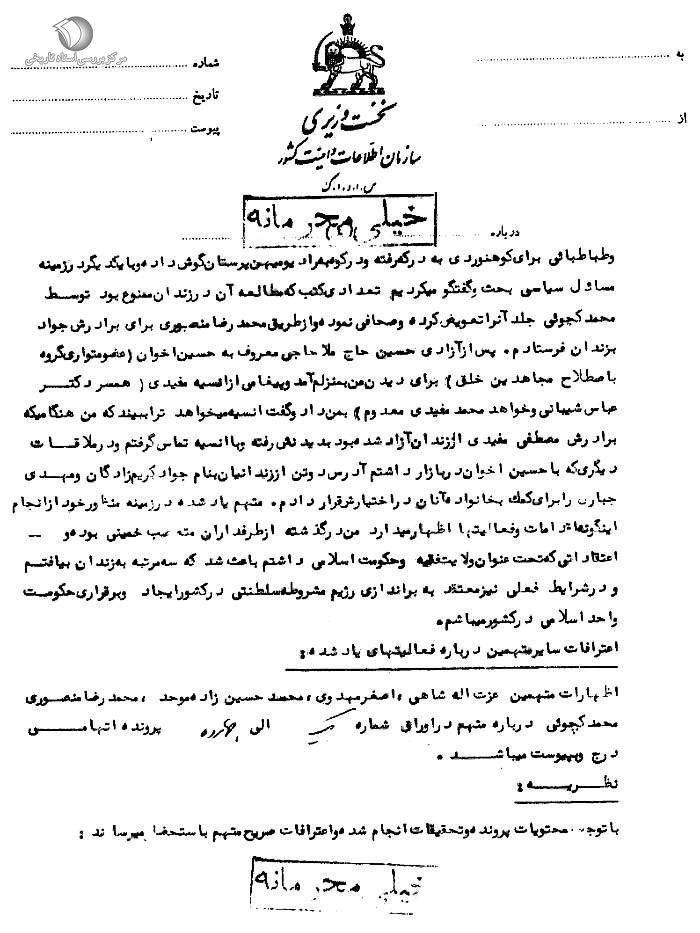 مرکز بررسی اسناد تاریخی
به
از
شماره
تاریخ
پیوست
نخست وزیری
سازمان اطلاعات و امنیت کشور
س.ا.و.ا.ک
خیلی محرمانه
درباره
وطباطبائی برای کوهنوردی به درکه رفته و در کوه به رادیو میهن پرستان گوش داده و با یکدیگر در زمینه
مسائل سیاسی بحث و گفتگو میکردیم تعدادی کتب که مطالعه آن در زندان ممنوع بود توسط
محمد کچوئی جلد آنرا تعویض کرده و صحافی نموده و از طریق محمد رضا منصوری برای برادرش جواد
بزندان فرستادم. پس از آزادی حسین حاج ملاحاجی معروف به حسین اخوان (عضو متواری گروه
باصطلاح مجاهدین خلق) برای دیدن من بمنزلم آمد و پیغامی از انسیه مفیدی (همسر دکتر
عباس شیبانی و خواهد محمد مفیدی معدوم) بمن داد و گفت انسیه میخواهد ترا ببیند که من هنگامیکه
برادرش مصطفی مفیدی از زندان آزاد شده بود بدیدنش رفته و با انسیه تماس گرفتم و در ملاقات
دیگری که با حسین اخوان در بازار داشتم آدرس دو تن از زندانیان بنام جواد کریم زادگان و مهدی
جباری را برای کمک بخانواده آنان در اختیارش قرار دادم. متهم یاد شده در زمینه منظور خود از انجام
اینگونه اقدامات و فعالیتها اظهار میدارد من در گذشته از طرفداران متعصب خمینی بوده و
اعتقاداتی که تحت عنوان ولایت فقیه و حکومت اسلامی داشتم باعث شد که سه مرتبه به زندان بیافتم
و در شرایط فعلی نیز معتقد به براندازی رژیم مشروطه سلطنتی در کشور ایجاد و برقراری حکومت
واحد اسلامی در کشور میباشم.
اعترافات سایر متهمین درباره فعالیتهای یاد شده:
اظهارات متهمین عزت اله شاهی، اصغر مهدوی، محمد حسین زاده موحد، محمد رضا منصوری
محمد کچوئی درباره متهم در اوراق شماره یک الی چهارده پرونده اتهامی
درج و پیوست میباشد.
نظریه:
با توجه به محتویات پرونده و تحقیقات انجام شده و اعترافات صریح متهم باستحضار میرساند:
خیلی محرمانه